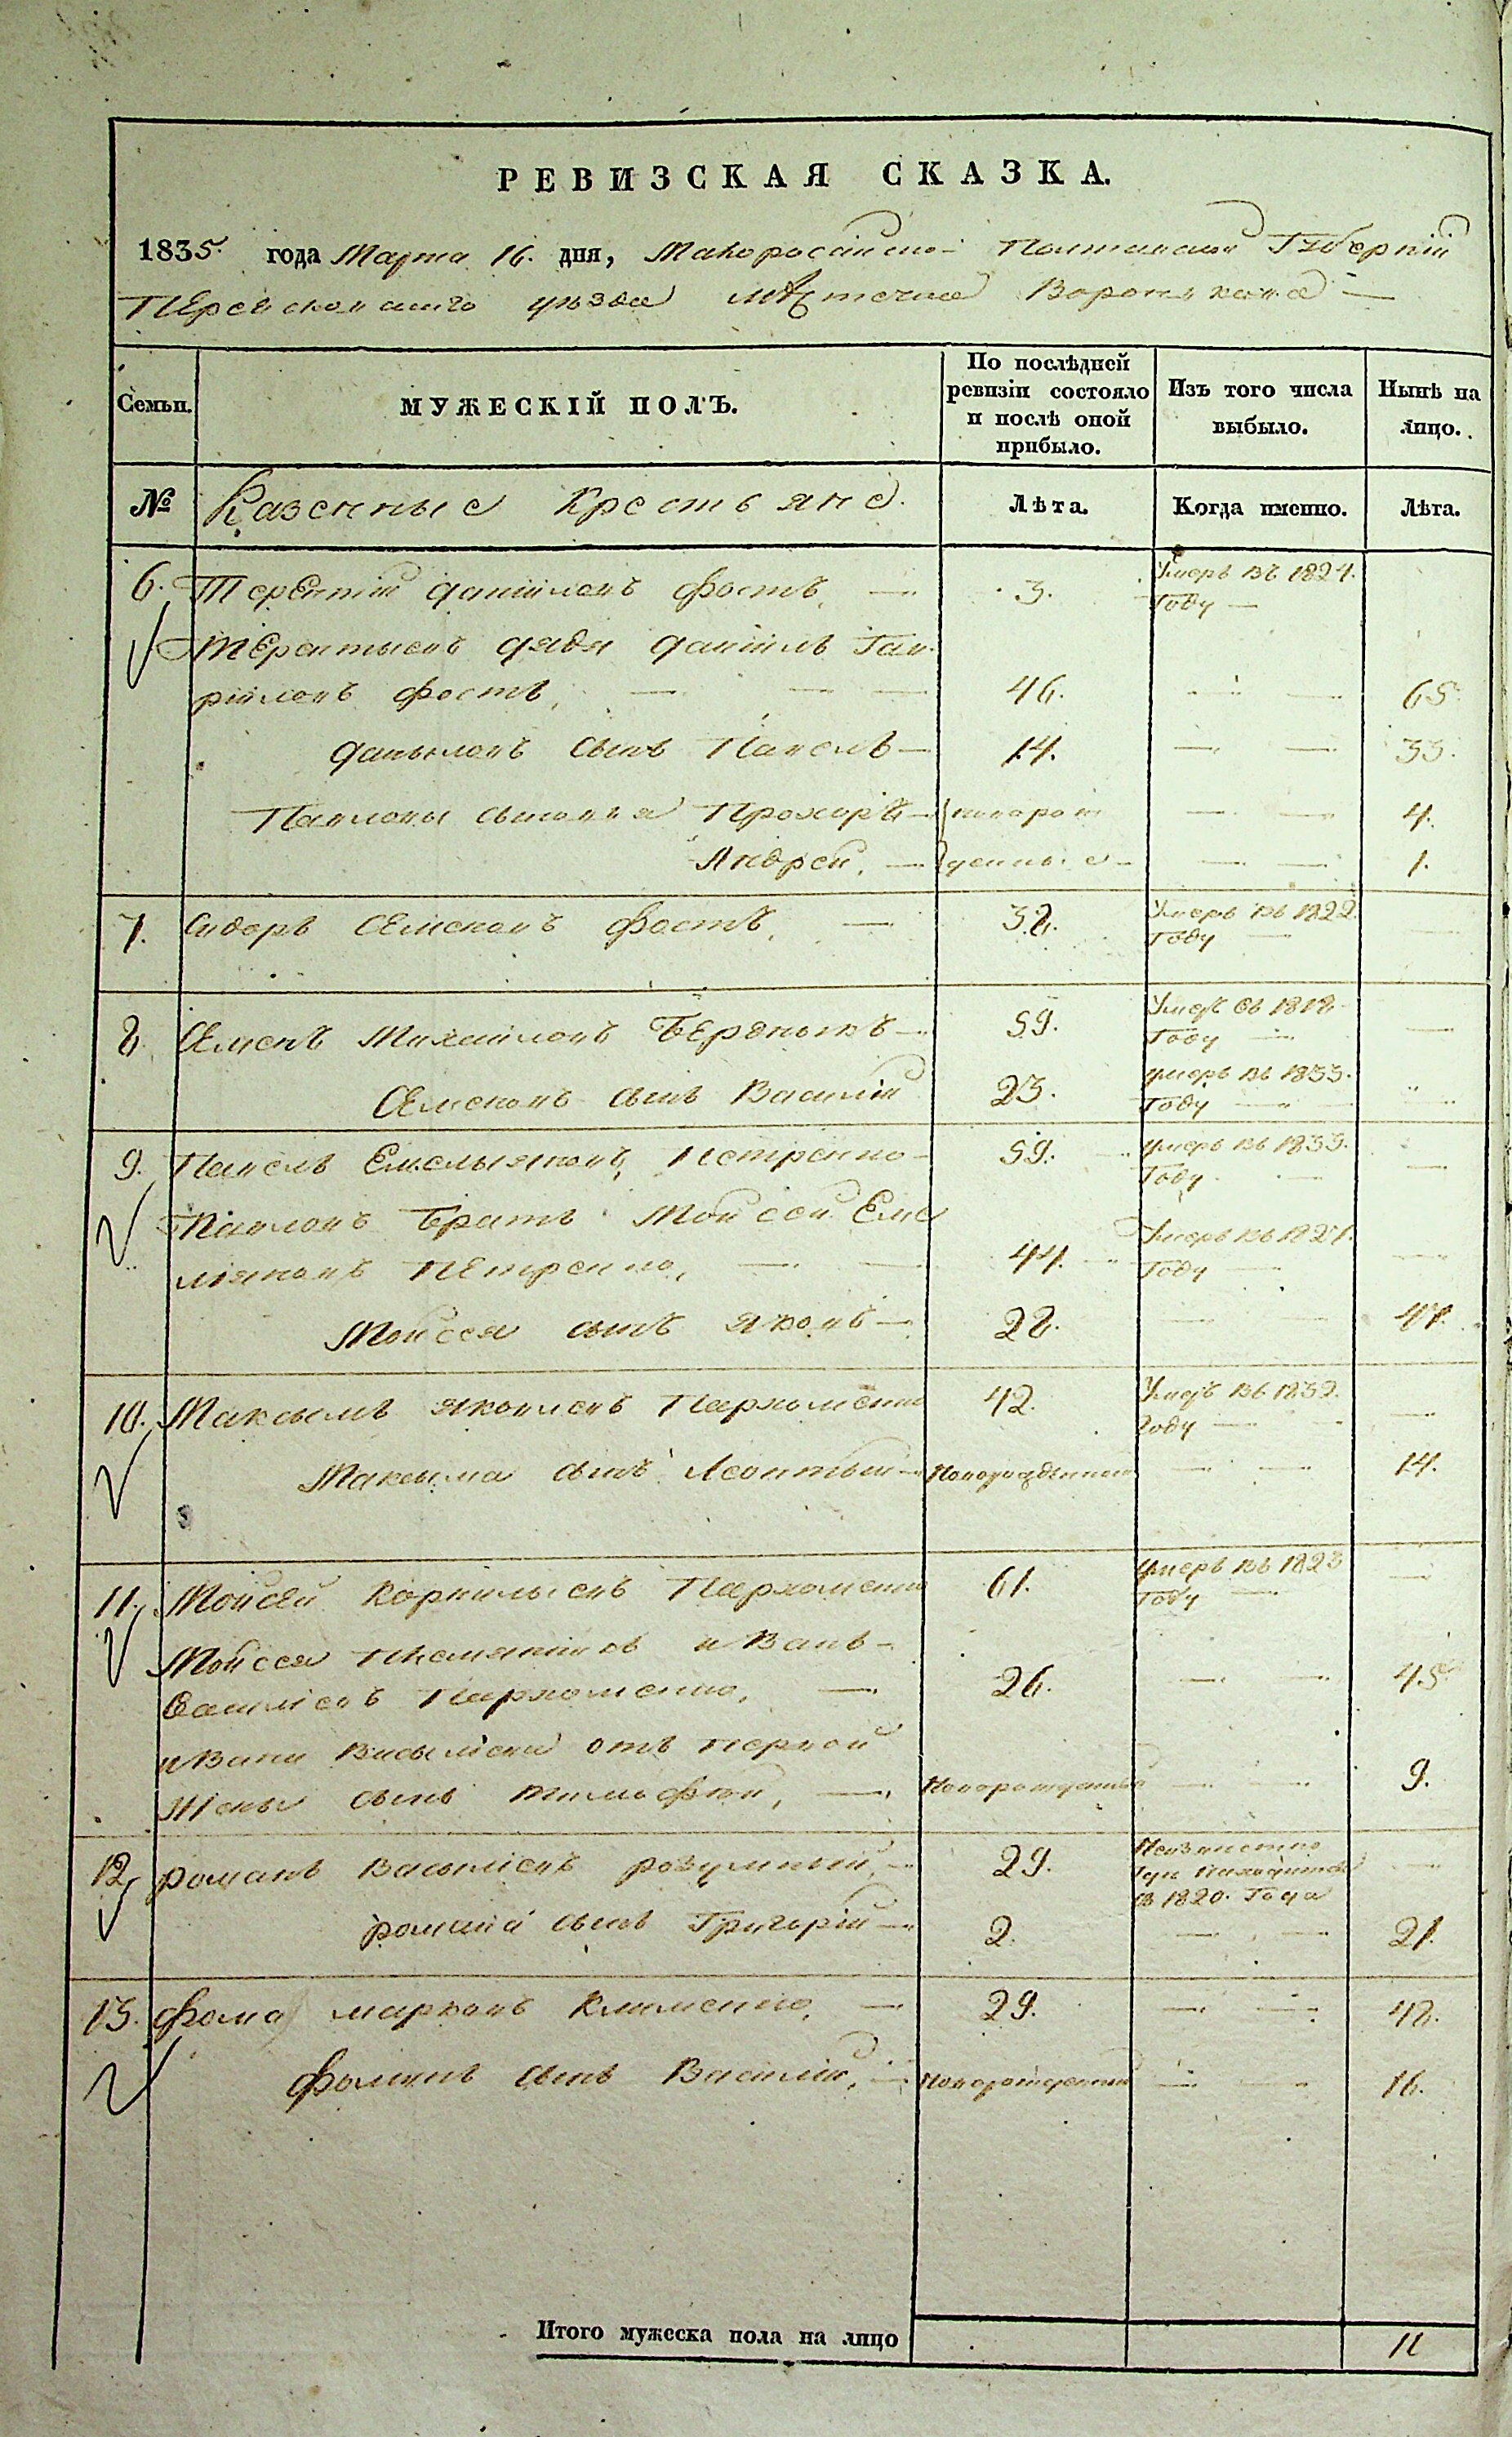 РЕВИЗСКАЯ СКАЗКА.
1835. года Марта 16. дня, Малоросійской Полтавской Губерніи
Переясловскаго уезда мѣстечка Воронкова
Семьи. МУЖЕСКІЙ ПОЛЪ. По послѣдней ревизіи состояло и послѣ оной прибыло. Изъ того числа выбыло. Нынѣ на лицо.
№ Казенные Крестьяне. Лѣта. Когда именно. Лѣта.
6. Терентій даниловъ фостъ, — 3. Умеръ въ 1824. Году —
Терентьевъ дядя даніилъ Гав-
ріиловъ фостъ, — 46. — 65.
даныловъ сынъ Павелъ — 14. — 33.
Павловы сыновья Прохоръ — новорож 4.
Андрей, — денные — 1.
7. Сидоръ Семеновъ фостъ, — 38. Умеръ въ 1822. Году —
8. Семенъ Михайловъ — 59. Умеръ въ 1818. Году —
Семеновъ сынъ Василій 23. умеръ въ 1833. Году —
9. Павелъ Емельяновъ Петренко — 59. умеръ въ 1833. Году —
Павловъ братъ Мойсей Еме
ляновъ Петренко, — 44. Умеръ въ 1827. Году —
Мойсея сынъ яковъ — 28. — 47.
10. Максымъ яковлевъ Пархоменко 42. Умеръ въ 1832. Году —
Максыма сынъ Леонтый — Новорожденной — 14.
11. Мойсей корнильевъ Пархоменко 61. умеръ въ 1823 Году —
Мойсея племянникъ иванъ —
Василіевъ Пархоменко, — 26. — 45.
ивана Васыліева отъ первой
жены сынъ тимофей, — Новорожденный — 9.
12. романъ Васыліевъ розумный — 29. Неизвестно Где находится съ 1820. Года —
романа сынъ Григорій — 2. — 21.
13. фома марковъ Клименко, — 29. — 48.
фоминъ сынъ Василій, — Новорожденный — 16.
Итого мужеска пола на лицо 11